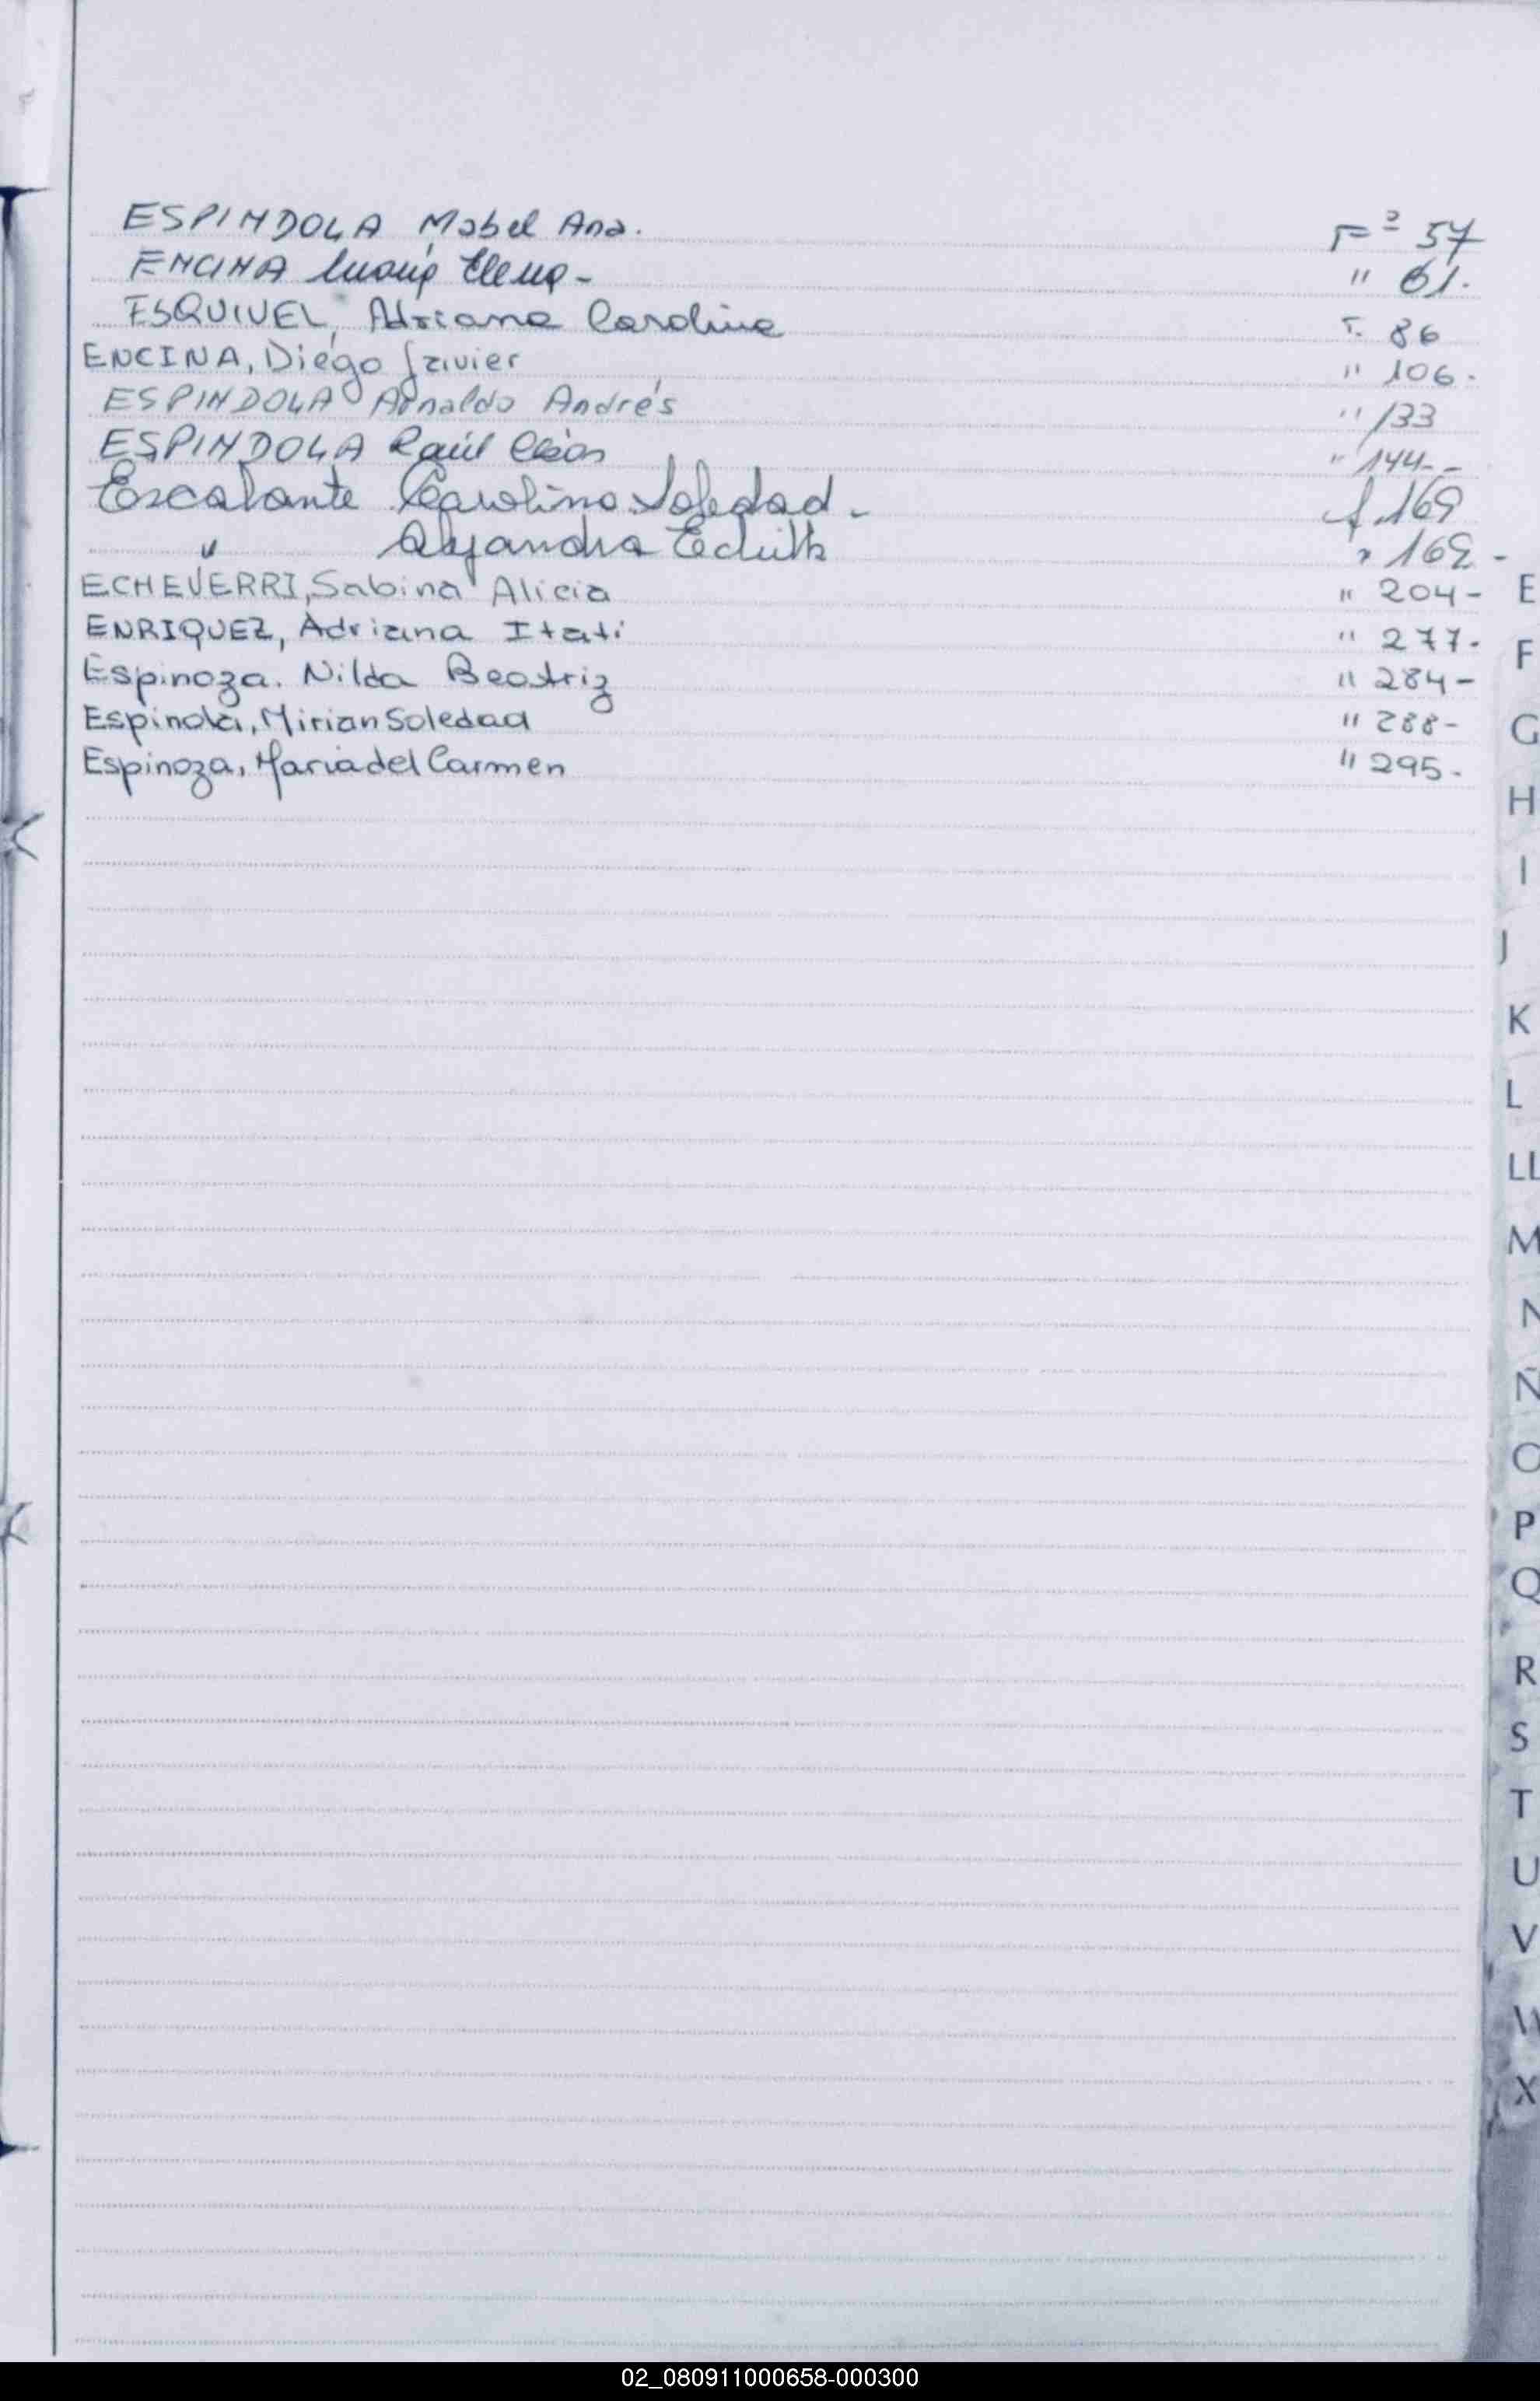 ESPINDOLA, Mabel Ana. Fº 57
ENCINA María Elena - " 61.
ESQUIVEL, Adriana Carolina F. 86
ENCINA, Diego Javier " 106.
ESPINDOLA Arnaldo Andrés " 133
ESPINDOLA Raúl " 144.-
Escalante Carolina Soledad - f. 169
" Alejandra Edith " 169 -
ECHEVERRI, Sabina Alicia " 204-
ENRIQUEZ, Adriana Itatí " 277.
Espinoza. Nilda Beatriz " 284-
Espinola, Mirian Soledad " 288-
Espinoza, Maria del Carmen " 295.
E
F
G
H
I
J
K
L
LL
M
N
Ñ
O
P
Q
R
S
T
U
V
W
X
02_080911000658-000300